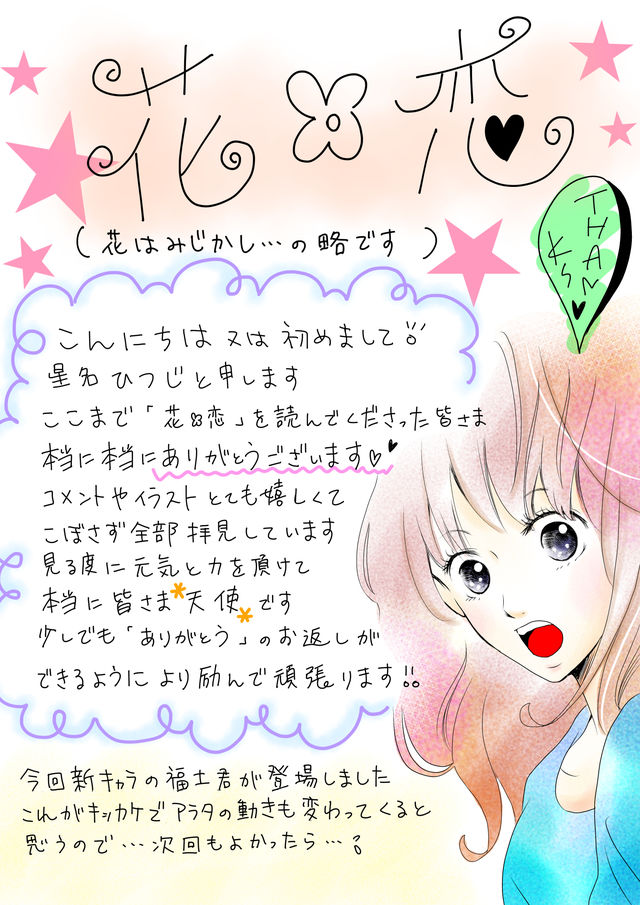 花✿恋
(花はみじかし…の略です)
THANKS♥
こんにちは又は初めまして
星名ひつじと申します
ここまで「花✿恋」を読んでくださった皆さま
本当に本当にありがとうございます♡♥
コメントやイラストとても嬉しくて
こぼさず全部拝見しています
見る度に元気と力を頂けて
本当に皆さま*天使*です
少しでも「ありがとう」のお返しが
できるようにより励んで頑張ります!!
今回新キャラの福士君が登場しました
これがキッカケでアラタの動きも変わってくると
思うので…次回もよかったら…